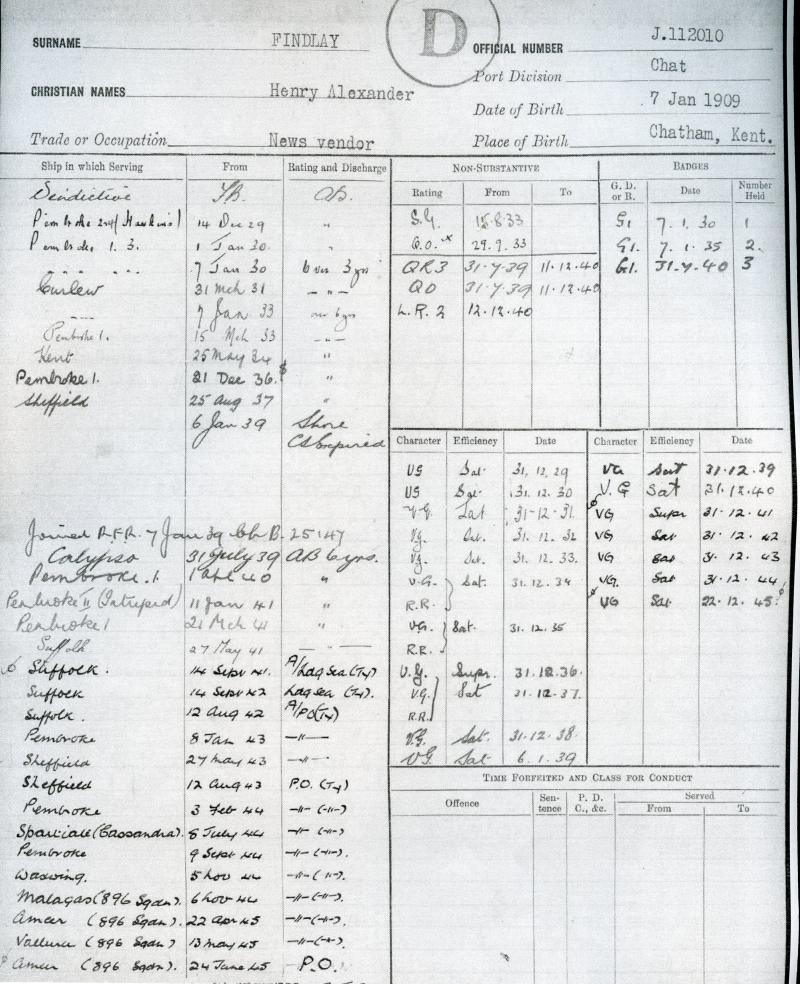 D
SURNAME FINDLAY
OFFICIAL NUMBER J.112010
Port Division Chat
CHRISTIAN NAMES Henry Alexander
Date of Birth 7 Jan 1909
Trade or Occupation News vendor
Place of Birth Chatham, Kent.
Ship in which Serving From Rating and Discharge
Vindictive AB.
14 Dec 29 "
1 Jan 30 "
" " " " 7 Jan 30 3 yrs
Curlew 31 Mch 31 - " -
7 Jan 33 over 6 yrs
Pembroke 1. 15 Mch 33 - " -
Kent 25 May 34 "
Pembroke 1. 21 Dec 36. "
Sheffield 25 Aug 37 "
6 Jan 39 Shore
CS Expired
Joined R.F.R. 7 Jan 39 B.
Calypso 31 July 39 AB 6 yrs.
Pembroke. 1. 40 "
Pembroke II (Intrepid) 11 Jan 41 "
Pembroke 1 21 Mch 41 "
Suffolk 27 May 41 - " -
Suffolk. 14 Sept 41. A/Ldg Sea (Ty)
Suffolk 14 Sept 42 Ldg Sea (Ty).
Suffolk. 12 Aug 42 A/PO (Ty)
Pembroke 8 Jan 43 -"-
Sheffield 27 May 43 -"-
Sheffield 12 Aug 43 P.O. (Ty)
Pembroke 3 Feb 44 -"- (-"-)
Spartiate (Cassandra). July 44 -"- (-"-)
Pembroke 9 Sept 44 -"- (-"-).
Waxwing. 5 Nov 44 -"- (-"-).
Malagas (896 Sqdn) 6 Nov 44 -"- (-"-).
Ameer (896 Sqdn). 22 Apr 45 -"- (-"-).
(896 Sqdn) 13 May 45 -"- (-"-).
Ameer (896 Sqdn). 24 June 45 P.O.
NON-SUBSTANTIVE
Rating From To
S.G. 15.8.33
Q.O. x 29.9.33
QR3 31-7-39 11.12.40
QO 31-7-39 11-12-40
L.R. 2 12.12.40
BADGES
G. D. or R. Date Number Held
G1 7. 1. 30 1
G1. 7. 1. 35 2.
G1. 31.7.40 3
Character Efficiency Date Character Efficiency Date
VG Sat. 31. 12. 29 VG Sat 31.12.39
VG Sat. 31. 12. 30 V.G Sat 31.12.40
V.G. Sat 31-12-31. VG Supr 31.12.41
Vg. Sat. 31. 12. 32 VG Sat 31.12.42
Vg. Sat. 31. 12. 33. VG Sat 31.12.43
V.G. Sat. 31.12.34 VG. Sat 31.12.44
R.R. VG Sat. 22.12.45.
V.G. Sat. 31.12.35
R.R.
V.G. Supr. 31.12.36.
VG. Sat 31.12.37.
R.R.
V.G. Sat. 31.12.38.
VG. Sat 6.1.39
TIME FORFEITED AND CLASS FOR CONDUCT
Offence Sentence P. D. C., &c. Served
From To